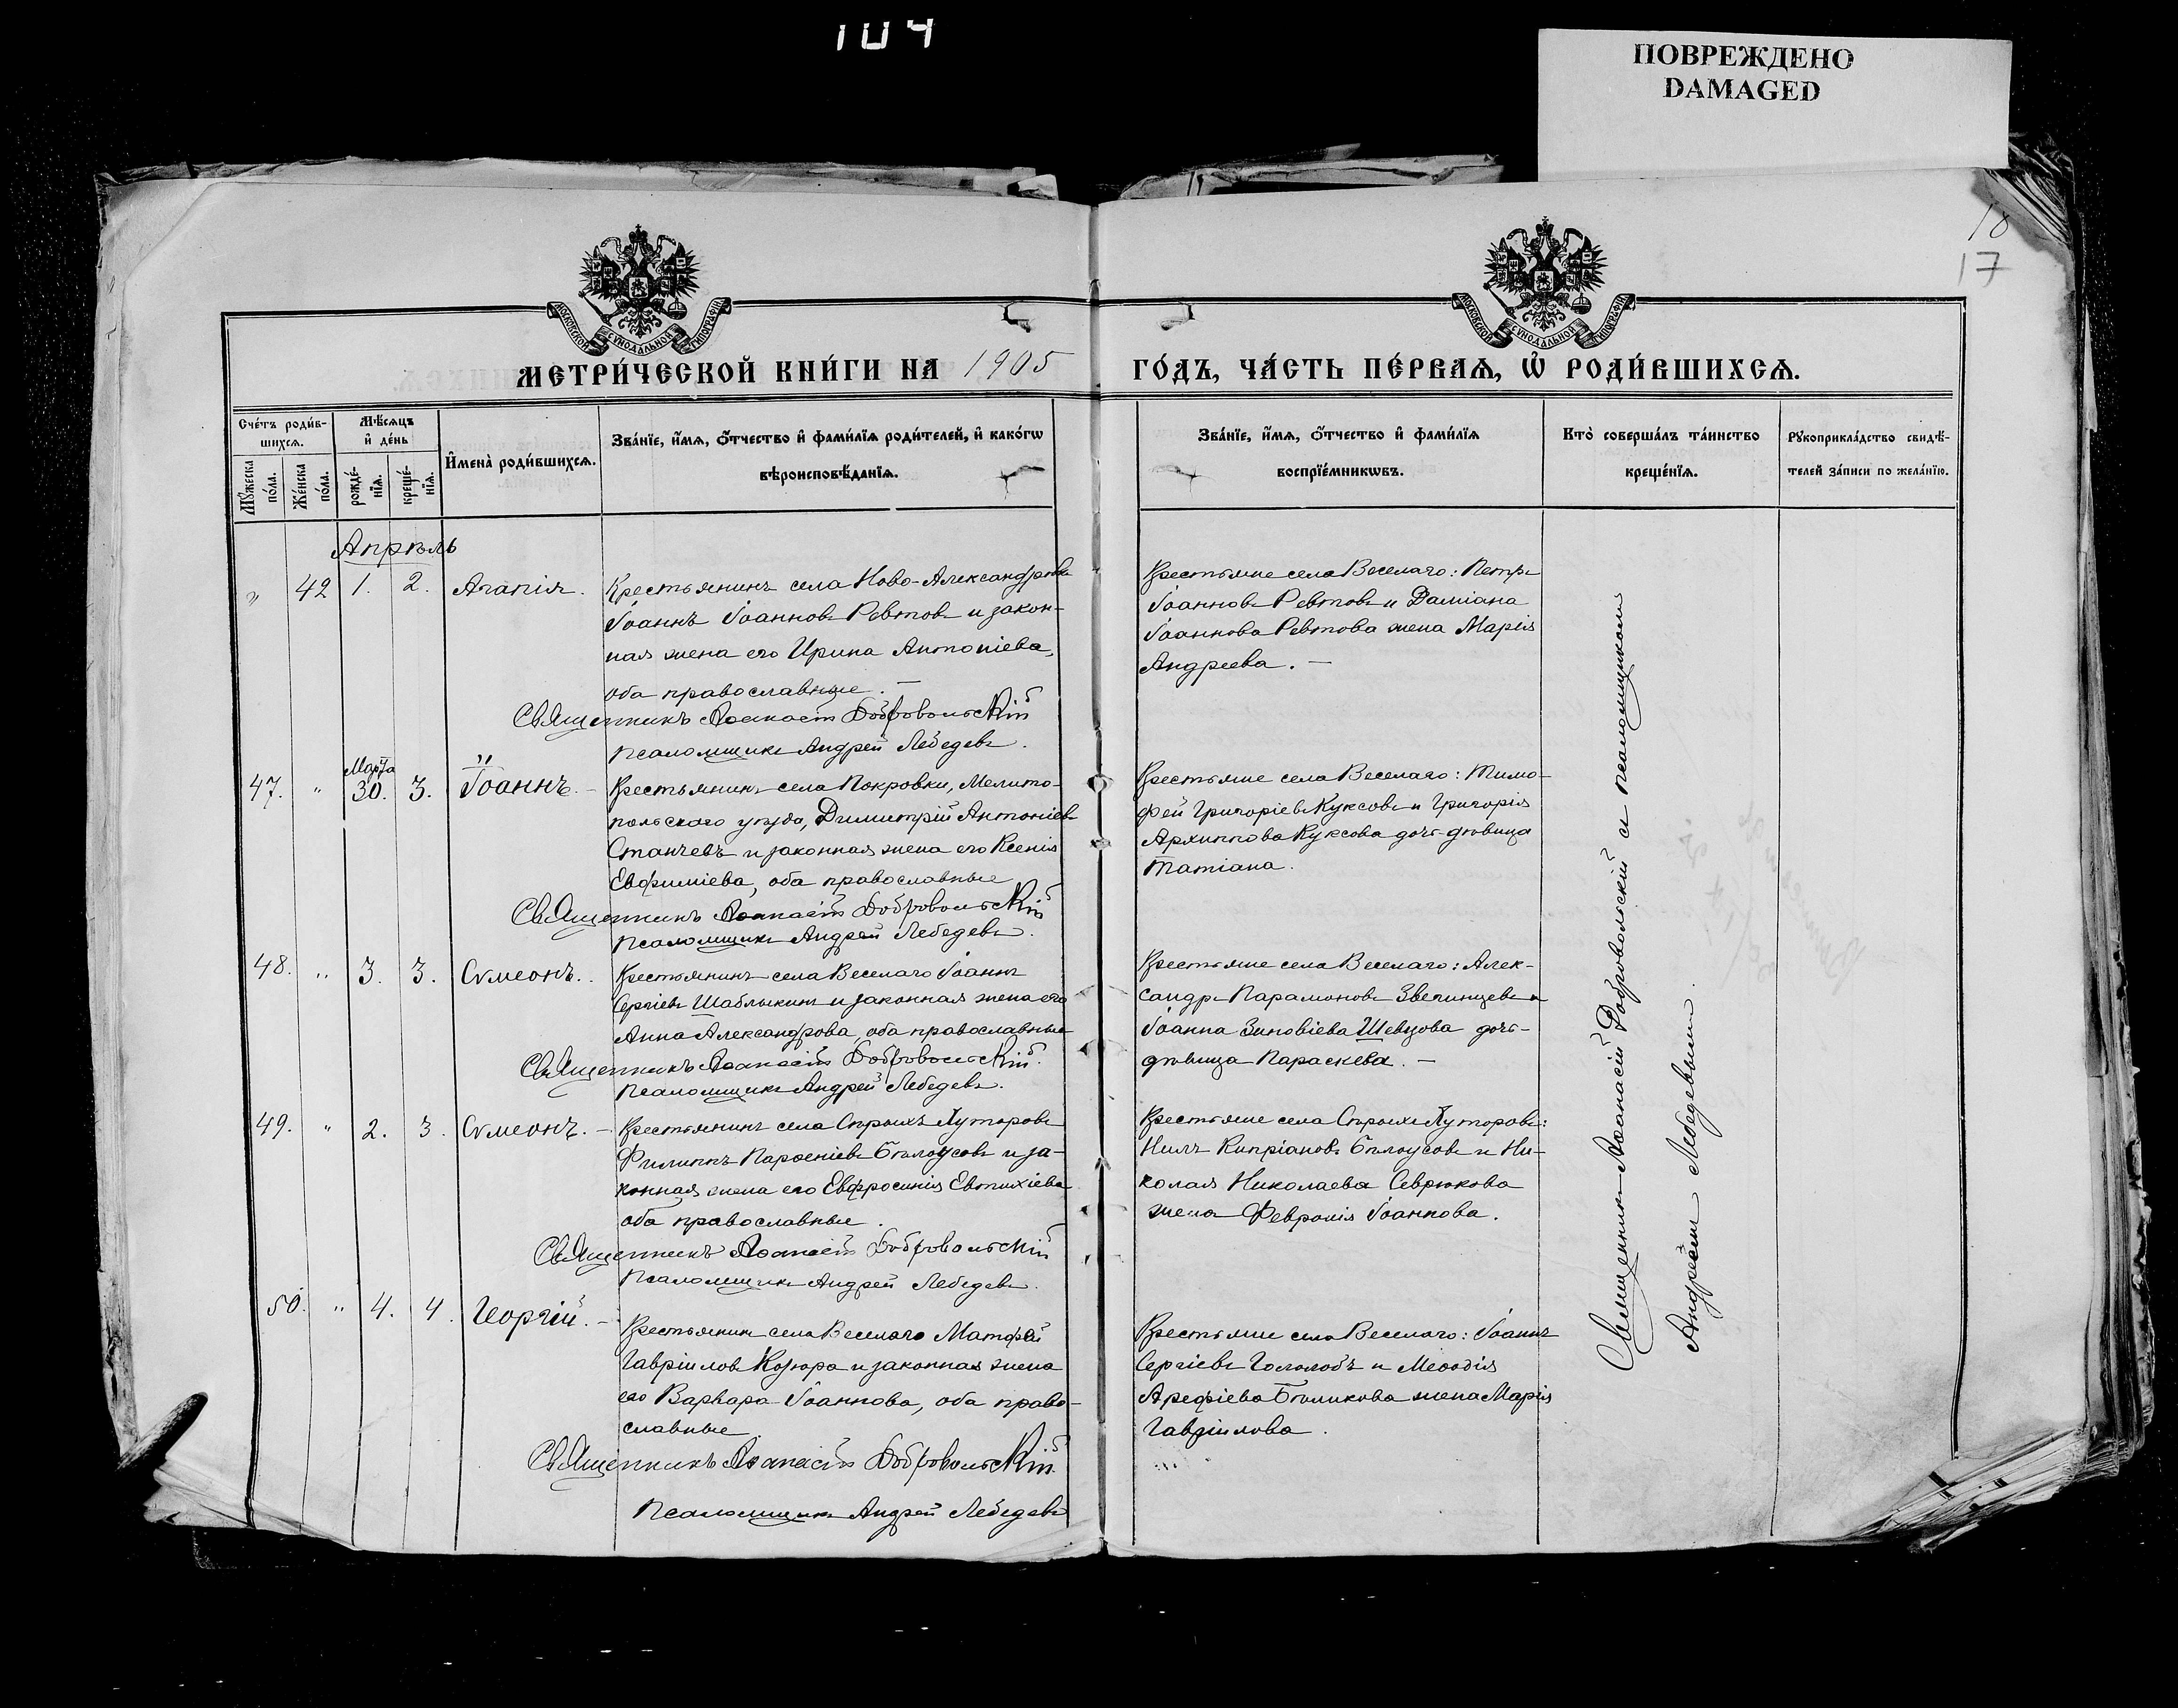 104
ПОВРЕЖДЕНО
DAMAGED
18
17
МОСКОВСКОЙ СѴНОДАЛЬНОЙ ТИПОГРАФІИ
МОСКОВСКОЙ СѴНОДАЛЬНОЙ ТИПОГРАФІИ
МЕТРИ́ЧЕСКОЙ КНИ́ГИ НА 1905
ГО́ДЪ, ЧА́СТЬ ПЕ́РВАѦ, Ѽ РОДИ́ВШИХСѦ.
Сче́тъ роди́в-
шихсѧ.
Мѣ́сѧцъ
и҆ де́нь
Мꙋ́жеска
по́ла.
Же́нска
по́ла.
рожде́-
нїѧ.
креще́-
нїѧ.
И҆мена̀ роди́вшихсѧ.
Зва́нїе, и҆́мѧ, ѻ҆́тчество и҆ фами́лїѧ роди́телей, и҆ како́гѡ
вѣроисповѣ́данїѧ.
Зва́нїе, и҆́мѧ, ѻ҆́тчество и҆ фами́лїѧ
воспрїе́мникѡвъ.
Кто̀ соверша́лъ та́инство
креще́нїѧ.
Рꙋкоприкла́дство свидѣ́-
телей за́писи по жела́нїю.
Апрѣль
" 42 1. 2. Агапія. Крестьянинъ села Ново-Александровки
Іоаннъ Іоанновъ Ревтовъ и закон-
ная жена его Ирина Антоніева,
оба православные. —
Священникъ Аѳанасій Добровольскій
Псаломщикъ Андрей Лебедевъ.
Крестьяне села Веселаго: Петръ
Іоанновъ Ревтовъ и Даміана
Іоаннова Ревтова жена Марія
Андреева. —
Марта
47. " 30. 3. Іоаннъ. — Крестьянинъ села Покровки, Мелито-
польскаго уѣзда, Димитрій Антоніевъ
Станчевъ и законная жена его Ксенія
Евфиміева, оба православные
Священникъ Аѳанасій Добровольскій
Псаломщикъ Андрей Лебедевъ.
Крестьяне села Веселаго: Тимо-
фей Григоріевъ Куксовъ и Григорія
Архиппова Куксова дочь дѣвица
Татіана.
48. " 3. 3. Сѵмеонъ. Крестьянинъ села Веселаго Іоаннъ
Сергіевъ Шаблыкинъ и законная жена его
Анна Александрова, оба православные
Священникъ Аѳанасій Добровольскій.
Псаломщикъ Андрей Лебедевъ.
Крестьяне села Веселаго: Алек-
сандръ Парамоновъ Звегинцевъ и
Іоанна Зиновіева Шевцова дочь-
дѣвица Параскева. —
49. " 2. 3. Сѵмеонъ. — Крестьянинъ села Спрыхъ Хуторовъ
Филиппъ Парѳеніевъ Бѣлоусовъ и за-
конная жена его Евфросинія Евтихіева
оба православные.
Священникъ Аѳанасій Добровольскій
Псаломщикъ Андрей Лебедевъ.
Крестьяне села Спрыхъ Хуторовъ:
Нилъ Кипріановъ Бѣлоусовъ и Ни-
колая Николаева Севрюкова
жена Февронія Іоаннова.
50. " 4. 4. Георгій. — Крестьянинъ села Веселаго Матфей
Гавріиловъ Козюра и законная жена
его Варвара Іоаннова, оба право-
славные.
Священникъ Аѳанасій Добровольскій.
Псаломщикъ Андрей Лебедевъ
Крестьяне села Веселаго: Іоаннъ
Сергіевъ Гололобъ и Меѳодія
Арефіева Бѣликова жена Марія
Гавріилова.
Священникъ Аѳанасій Добровольскій и псаломщикомъ
Андреемъ Лебедевымъ.